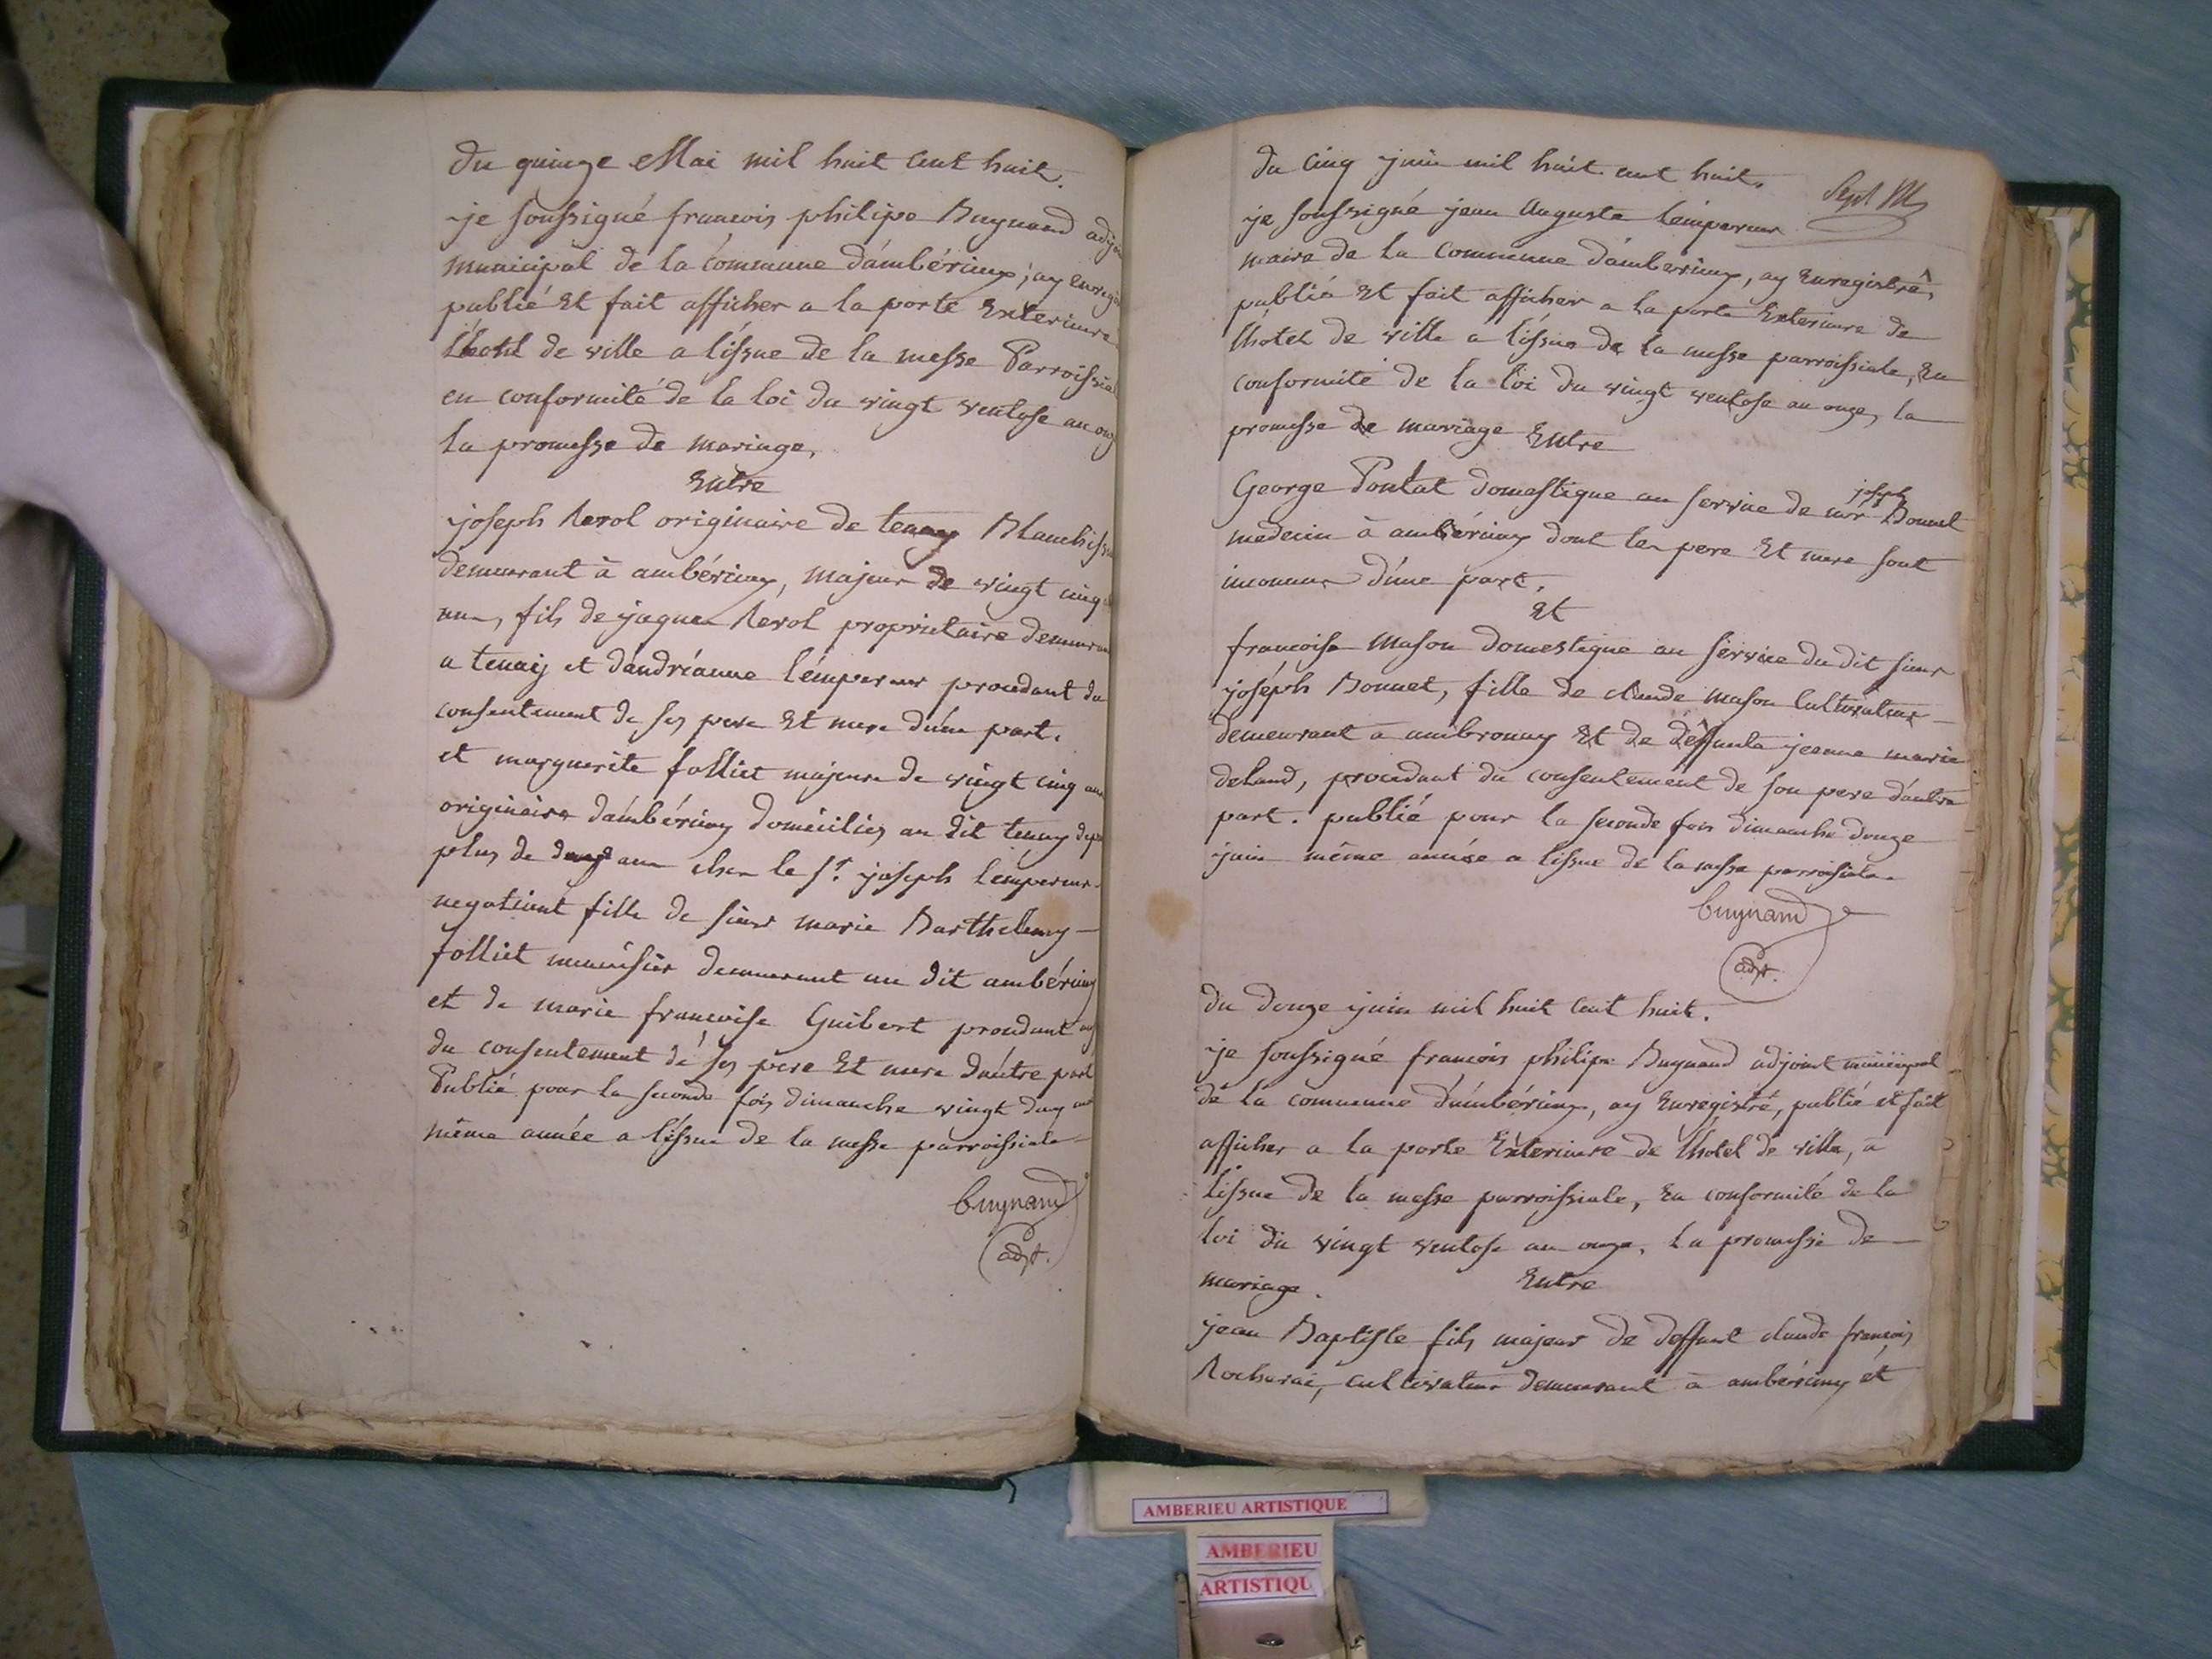 du quinze Mai mil huit cent huit.
je soussigné francois philipe Buynand adjoi
municipal de la commune d'ambérieux, ay enregis
publié Et fait afficher a la porte Exterieure
Lhotel de ville a l'issue de la messe Parroissial
en conformité de la loi du vingt ventose an onz
la promesse de mariage,
Entre
joseph Revol originaire de tenay Blanchiss
demeurant à ambérieux, majeur de vingt cinq
ans, fils de jaques Revol proprietaire demeuran
a tenaij et d'andréanne l'émpereur procedant du
consentement de ses pere Et mere d'une part.
et marguerite folliet majeure de vingt cinq ans
originaire d'ambérieux domiciliez au dit tenay dep
plus de ans chez le sr. joseph lempereur
negotiant fille de sieur marie Barthelemy
folliet menuisier demeurant au dit ambérieux
et de marie francoise Guibert procedant
du consentement de ses père Et mere d'autre part
Publié pour la seconde fois dimanche vingt deux
même année a l'issue de la messe parroissiale
buynand
adjt.
du cinq juin mil huit cent huit.
Sept
je soussigné jean Auguste lémpereur
maire de la Commune d'amberieux, ay Enregistré,
publié Et fait afficher a la porte Exterieure de
lhotel de ville a l'issue de la messe parroissiale, En
conformité de la loi du vingt ventose an onze, la
promesse de mariage Entre
joseph
George Pontat domestique au service de mr Bonnet
medecin à ambérieux dont les pere Et mere sont
inconnus d'une part.
Et
francoise Mason domestique au service du dit sieur
joséph Bonnet, fille de claude mason Cultivateur
demeurant a ambronay Et de déffunte jeanne marie
deland, procedant du consentement de son pere d'autre
part. publié pour la seconde fois dimanche douze
juin même année a lissue de la messe parroissiale.
buynand
adjt.
du douze juin mil huit cent huit.
je soussigné francois philipe Buynand adjoint municipal
de la commune d'ambérieux, ay Enregistré, publié et fait
afficher a la porte Exterieure de lhotel de ville, a
lissue de la messe parroissiale, En conformité de la
loi du vingt ventose an onze, la promesse de
mariage. Entre
jean Baptiste fils majeur de deffunt claude francois
Rocharai, cultivateur demeurant à ambérieux et
AMBERIEU ARTISTIQUE
AMBERIEU
ARTISTIQU